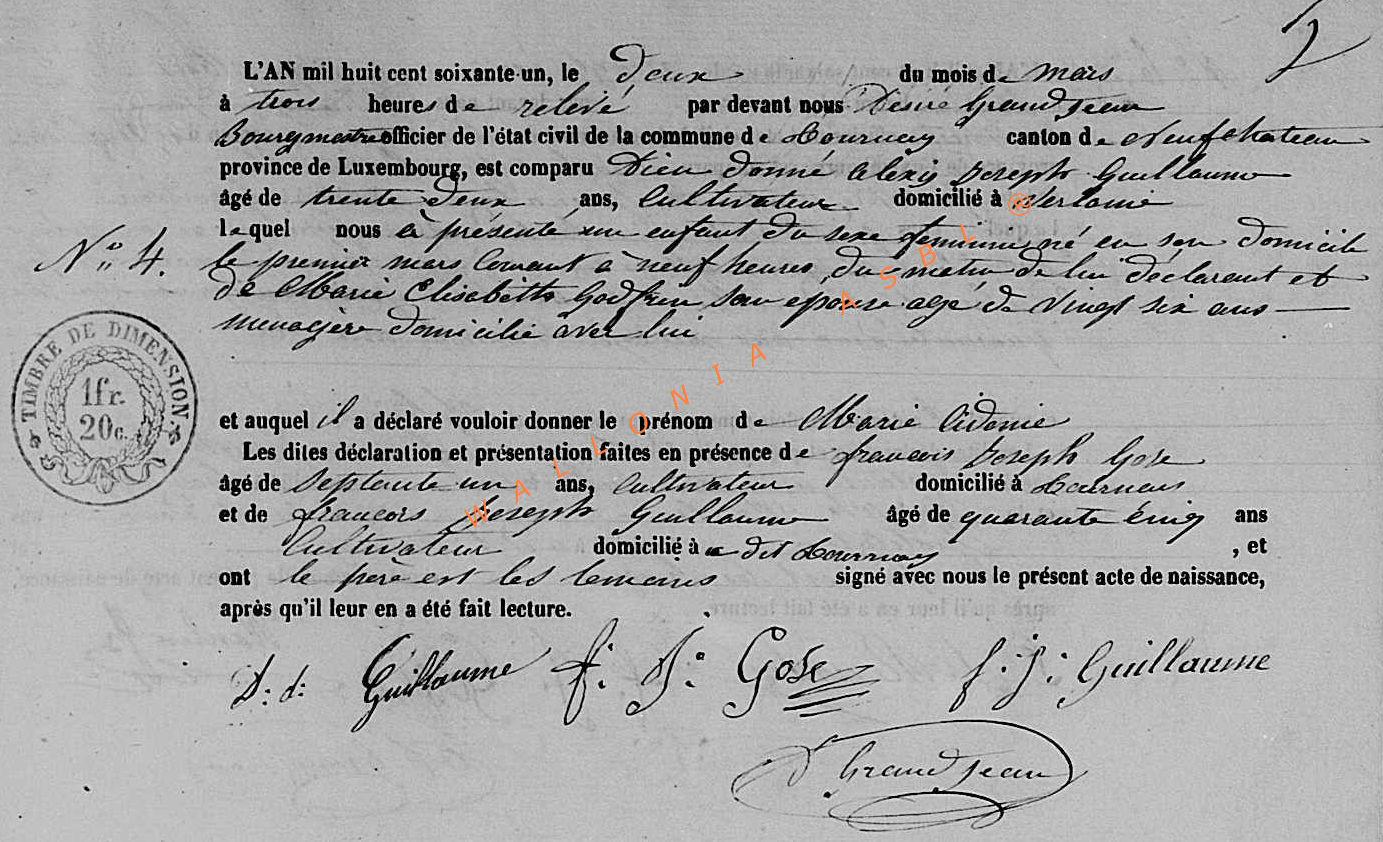 2
L'AN mil huit cent soixante-un, le deux du mois de mars
à trois heures de relevé par devant nous Désiré Grandjean
Bourgmestre officier de l'état civil de la commune de Tournay canton de Neufchateau
province de Luxembourg, est comparu Dieu donné Alexis Joseph Guillaume
âgé de trente deux ans, Cultivateur domicilié à Verlaine
lequel nous à présenté un enfant du sexe feminin, né en son domicile
N° 4. le premier mars Courant à neuf heures du matin de lui déclarant et
de Marie Elisabeth son épouse agé de Vingt six ans
menagère domicilié avec lui
TIMBRE DE DIMENSION
1fr.
20c.
et auquel il a déclaré vouloir donner le prénom de Marie
Les dites déclaration et présentation faites en présence de françois Joseph Gose
âgé de Septante un ans, Cultivateur domicilié à Tournay
et de françois Joseph Guillaume âgé de quarante cinq ans
Cultivateur domicilié à dit Tournay, et
ont le père est les temoins signé avec nous le présent acte de naissance,
après qu'il leur en a été fait lecture.
D: d: Guillaume f: J: Gose f: J: Guillaume
D Grandjean
@ WALLONIA ASBL